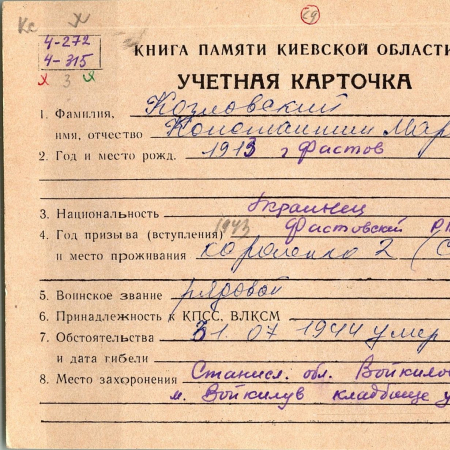 Ч-272
Ч-315
х 3 х
КНИГА ПАМЯТИ КИЕВСКОЙ ОБЛАСТИ
УЧЕТНАЯ КАРТОЧКА
1. Фамилия, Козловский
имя, отчество Константин Мар
2. Год и место рожд. 1913 г Фастов
3. Национальность Украинец
4. Год призыва (вступления) 1943 Фастовский
и место проживания короленко 2
5. Воинское звание рядовой
6. Принадлежность к КПСС, ВЛКСМ
7. Обстоятельства 31.07 1944 умер
и дата гибели
8. Место захоронения Станисл. обл. Войнилов
м. Войнилув кладбище у